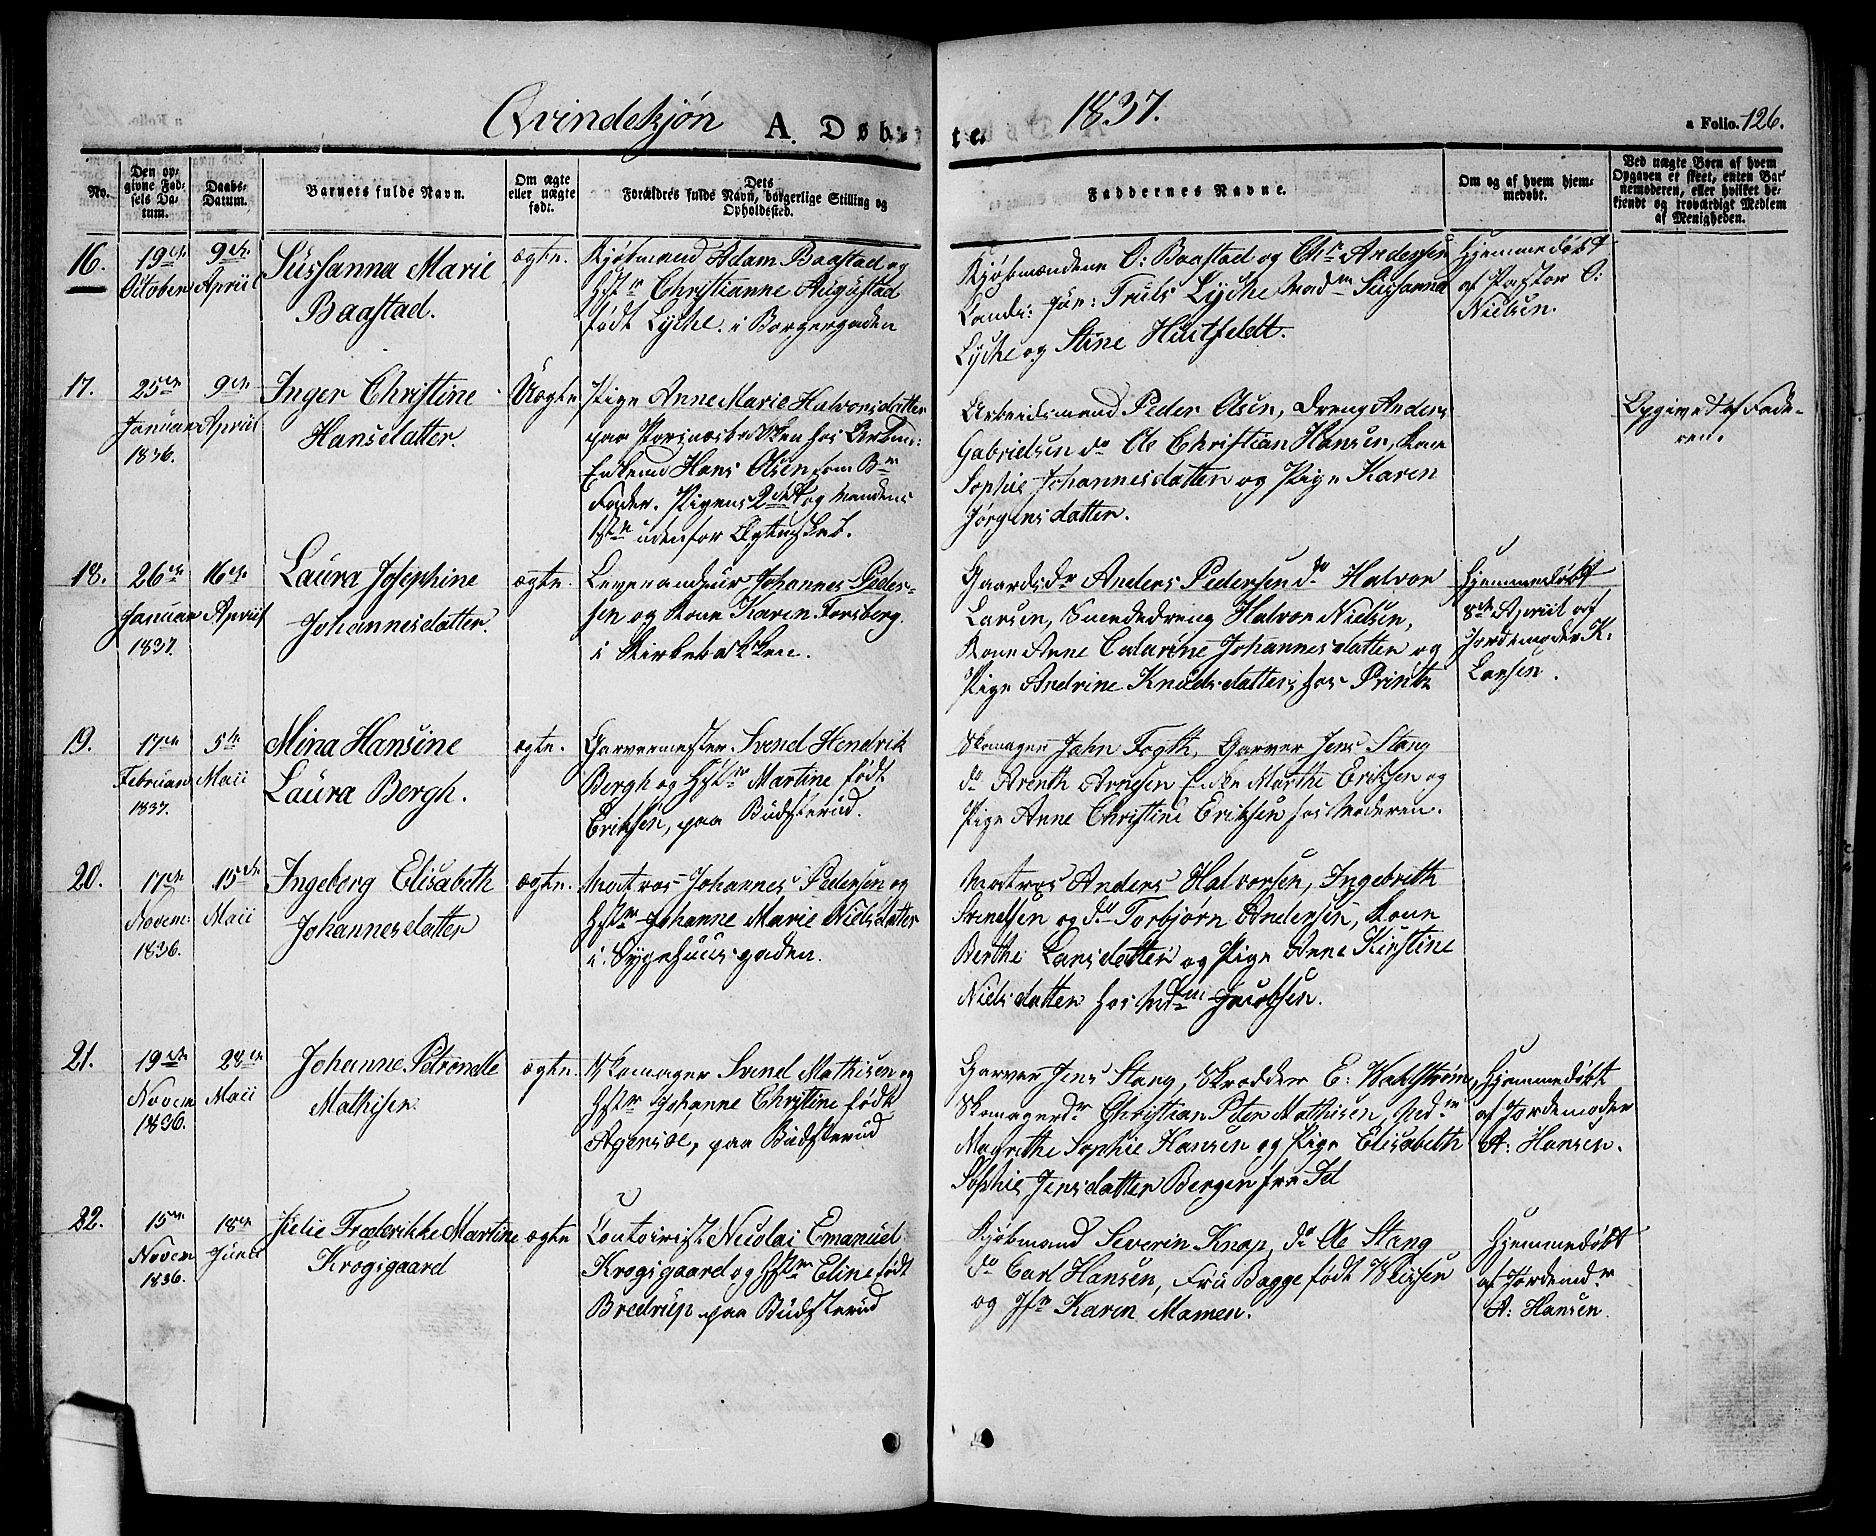 Qvindekjøn A. Døbte 1837.
a Folio. 126.
No.
Den opgivne Fødsels Datum.
Daabs-Datum.
Barnets fulde Navn.
Om ægte eller uægte født.
Dets Forældres fulde Navn, borgerlige Stilling og Opholdssted.
Faddernes Navne.
Om og af hvem hjemmedøbt.
Ved uægte Børn af hvem Opgaven er skeet, enten Barnemoderen, eller hvilket bekjendt og troværdigt Medlem af Menigheden.
16.
19de
October
9de
April
Süssanna Marie
Baastad.
ægte.
Kjøbmand Adam Baastad og
Hstr Christianne Augustad
født Lyche. i Borgergaden
Kjøbmændene O: Baastad og Chr Andersen
Cand: jur: Truls Lyche Madm Süssanna
Lyche og Stine Huitfeldt.
Hjemmedøbt
af Pastor O:
Nielsen.
17.
25de
Januar
1836.
9de
April
Inger Christine
Hansdatter.
Uægte
Pige Anne Marie Halvorsdatter
paa hos
Enkemd Hans Olsen som B
Fader. Pigens 2det og Mandens
1ste udenfor Ægteskab.
Arbeidsmand Peder Olsen, Dreng Anders
Gabrielsen do Ole Christian Hansen, Kone
Sophie Johannesdatter og Pige Karen
Jørgensdatter.
Opgivet af Fade-
ren.
18.
26de
Januar
1837.
16de
April
Laura Josephine
Johannesdatter.
ægte.
Johannes Peder-
sen og Kone Karen Torsberg.
i Kirkebakken.
Gaardsdr Anders Pedersen do Halvor
Larsen, Smededreng Halvor Nielsen,
Kone Anne Catarine Johannesdatter og
Pige Andrine Knudsdatter, hos Printz
Hjemmedøbt
8de April af
Jordemoder K:
Larsen.
19.
17de
Februar
1837.
5te
Maii
Mina Hansine
Laura Bergh.
ægte.
Garvermester Svend Hendrik
Bergh og Hstr Martine født
Eriksen, paa Büdsterud.
Skomager John Fogth, Garver Jens Stang
do Arenth Arnesen Enke Marthe Eriksen og
Pige Anne Christine Eriksen hos Moderen.
20.
17de
Novem:
1836.
15de
Maii
Ingeborg Elisabeth
Johannesdatter
ægte.
Matros Johannes Pedersen og
Hstr Johanne Marie Nielsdatter
i Sygehuusgaden.
Matros Anders Halvorsen, Ingebreth
Svendsen og do Torbjørn Andersen, Kone
Berthe Larsdatter og Pige Anne Kirstine
Nielsdatter hos Mdm Jacobsen.
21.
19de
Novem
1836.
28de
Maii
Johanne Petronelle
Mathisen
ægte.
Skomager Svend Mathisen og
Hstr Johanne Christine født
Agersøe, paa Büdsterud
Garver Jens Stang, Skrædder E: Wahlstrøm,
Skomagerdr Christian Peter Mathisen, Mdm
Magrethe Sophie Hansen og Pige Elisabeth
Sophie Jensdatter Bergen fra Id
Hjemmedøbt
af Jordemoder
A: Hansen.
22.
15de
Novem
1836.
18de
Junii
Julie Fredrikke Martine
Krogsgaard
ægte
Contoirist Nicolai Emanuel
Krogsgaard og Hstr Eline født
Bredrup paa Büdsterud
Kjøbmand Severin Knap, do Ole Stang
do Carl Hansen, Fru Bagge født Nilssen
og Jfr Karen Mamen.
Hjemmedøbt
af Jordemdr
A: Hansen.